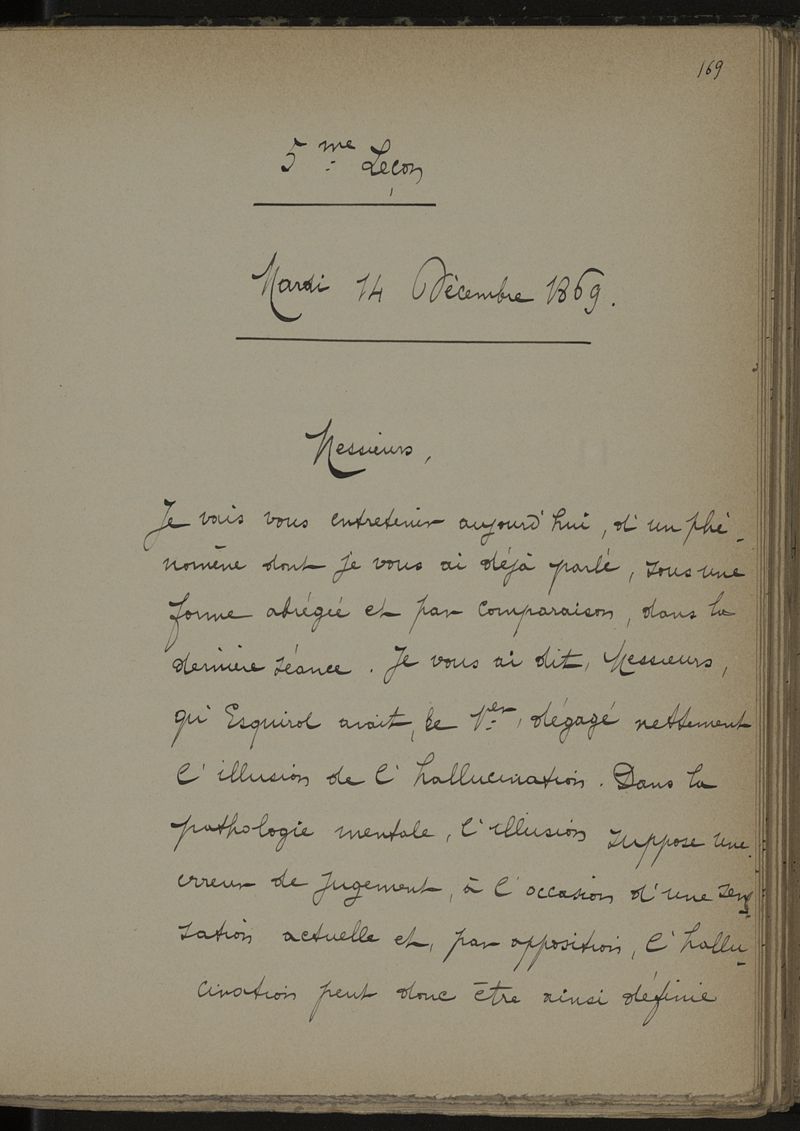 169
5me Leçon
Mardi 14 Décembre 1869.
Messieurs,
Je vais vous entretenir aujourd'hui, d'un phé-
nomène dont je vous ai déjà parlé, sous une
forme abrégée et par comparaison, dans la
dernière séance. Je vous ai dit, Messieurs,
qu'Esquirol avait, le 1er, dégagé nettement
l'illusion de l'hallucination. Dans la
pathologie mentale, l'illusion suppose une
erreur de jugement, à l'occasion d'une sen-
sation actuelle et, par opposition, l'hallu-
cination peut donc être ainsi définie